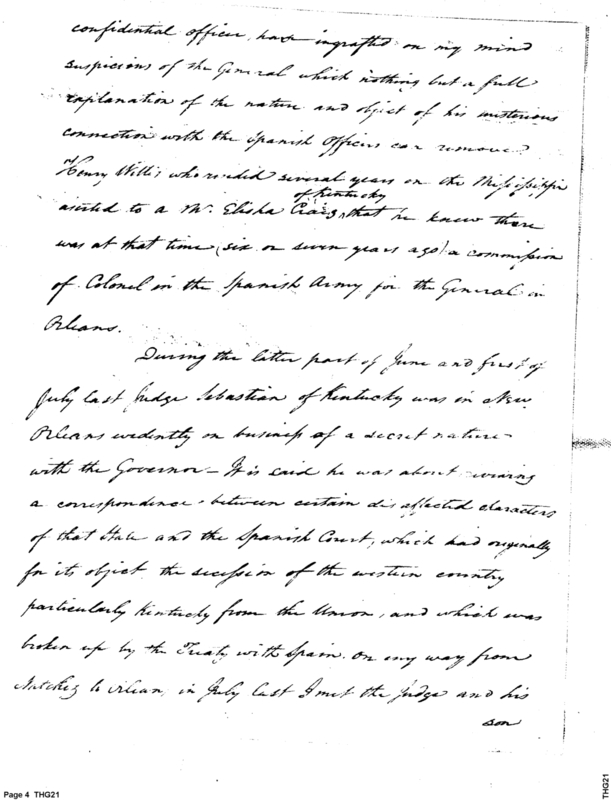 confidential officer, have ingrafted on my mind
suspicions of the General which nothing but a full
explanation of the nature and object of his misterious
connection with the Spanish Officers can remove.
Henry Willis who resided several years on the Mississippi
of Kentucky
asserted to a Mr. Elisha Craig, that he knew there
was at that time (six or seven years ago) a commission
of Colonel in the Spanish Army for the General in
Orleans.
During the latter part of June and first of
July last Judge Sebastian of Kentucky was in New
Orleans evidently on business of a secret nature
with the Governor - It is said he was about
a correspondence between certain disaffected characters
of that State and the Spanish Court, which had originally
for its object the secession of the western country
particularly Kentucky from the Union, and which was
broken up by the Treaty with Spain. On my way from
Natchez to orleans, in July last I met the Judge and his
son
Page 4 THG21
THG21